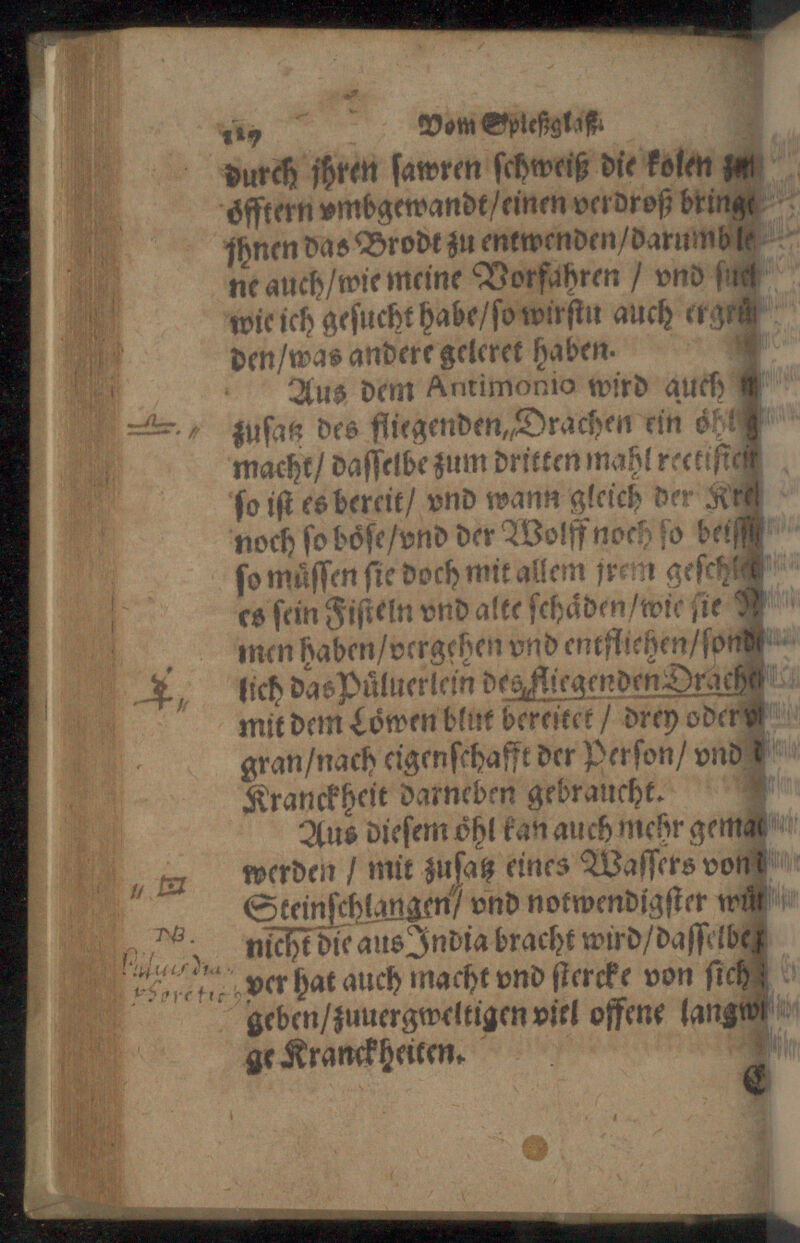 Vom Spießglaß.
durch jhren ſawren ſchweiß die kolen
oͤfftern vmbgewandt/einen verdroß bring
jhnen das Brodt zu entwenden/darumb
ne auch/wie meine Vorfahren / vnd
wie ich geſucht habe/ſo wirſtu auch
den/was andere geleret haben.
Aus dem Antimonio wird auch
zuſatz des fliegenden Drachen ein oͤhl
macht/ daſſelbe zum dritten mahl
ſo iſt es bereit/ vnd wann gleich der
noch ſo boͤſe/vnd der Wolff noch ſo
ſo muͤſſen ſie doch mit allem jrem
es ſein Fiſteln vnd alte ſchaͤden/wie ſie
men haben/vergehen vnd entfliehen/
lich das Puͤluerlein des fliegenden
mit dem Loͤwen blut bereitet / drey oder
gran/nach eigenſchafft der Perſon/ vnd
Kranckheit darneben gebraucht.
Aus dieſem oͤhl kan auch mehr
werden / mit zuſatz eines Waſſers von
Steinſchlangen/ vnd notwendigſter
NB. nicht die aus India bracht wird/
ver hat auch macht vnd ſtercke von ſich
geben/zuuergweltigen viel offene
ge Kranckheiten.